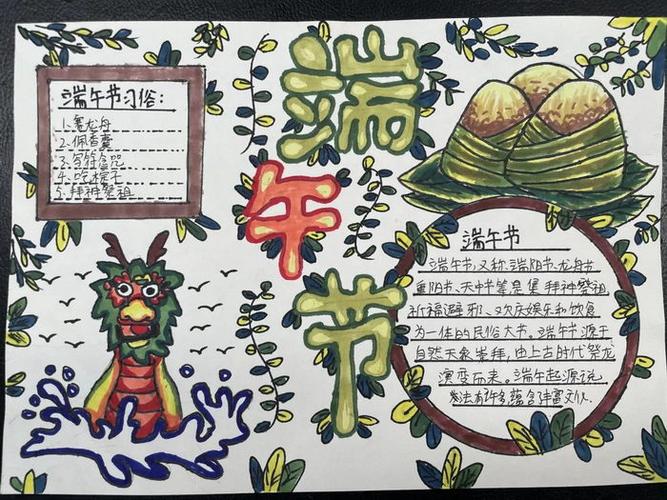 端午节
端午节习俗：
1、赛龙舟
2、佩香囊
3、写符念咒
4、吃粽子
5、拜神祭祖
端午节
端午节,又称端阳节、龙舟节、
重阳节、天中节等是集拜神祭祖
祈福避邪、欢庆娱乐和饮食
为一体的民俗大节。端午节源于
自然天象崇拜,由上古时代祭龙
演变而来。端午起源说
法有许多蕴含丰富文化.